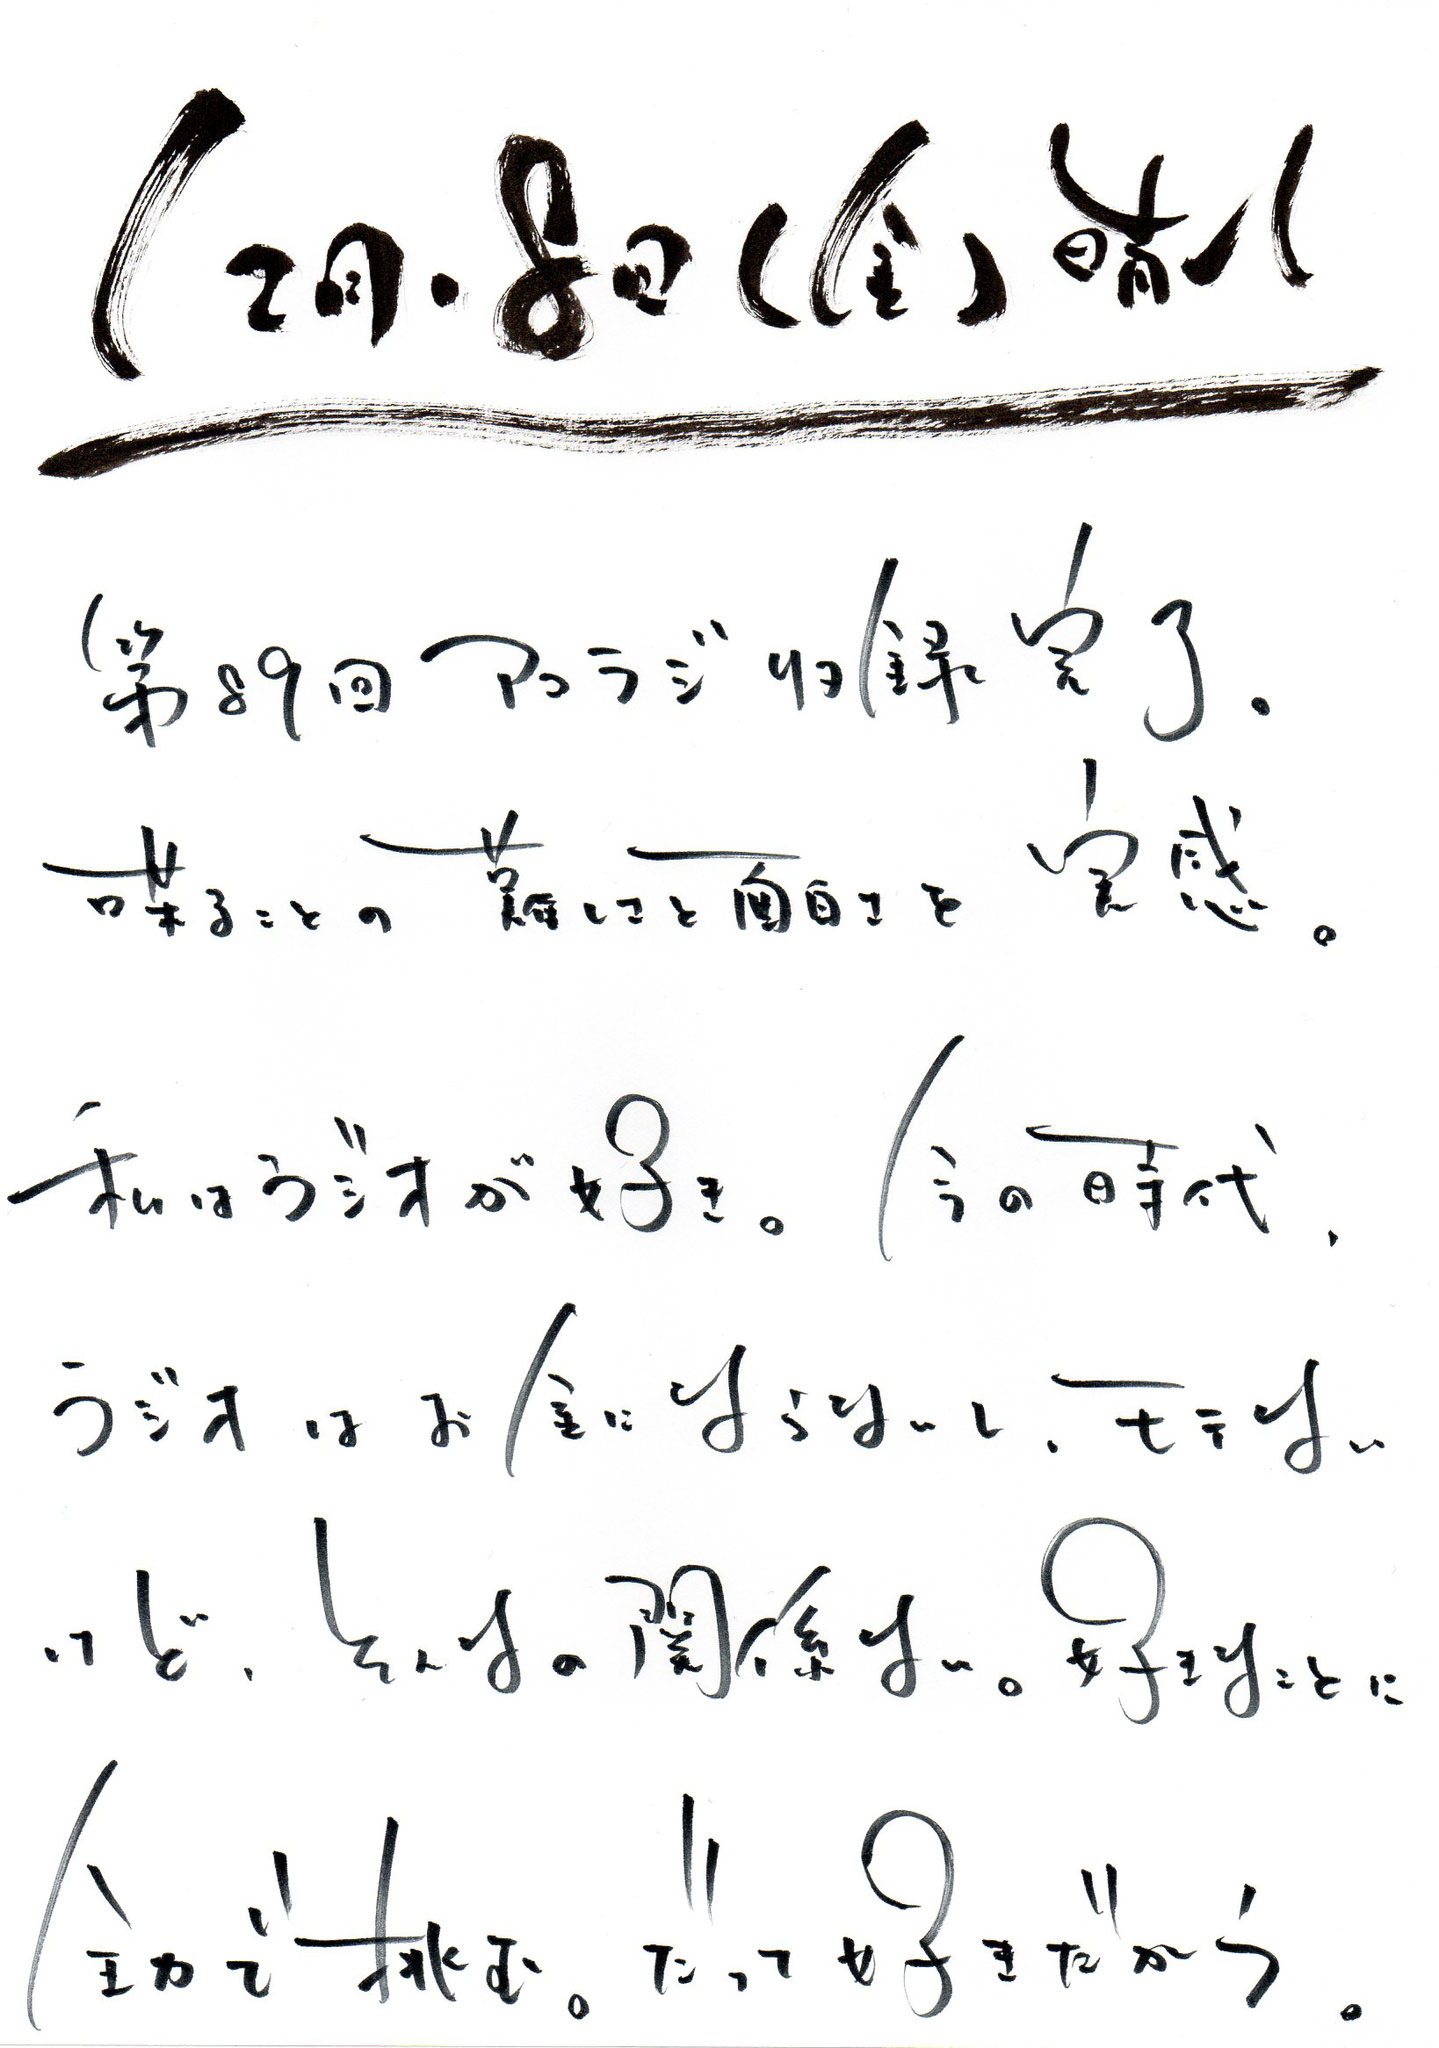 12月.8日(金)晴れ
第89回アコラジ収録完了。
喋ることの難しさと面白さを実感。
私はラジオが好き。今の時代、
ラジオはお金にならないし、モテない
けど、そんなの関係ない。好きなことに
全力で挑む。だって好きだから。